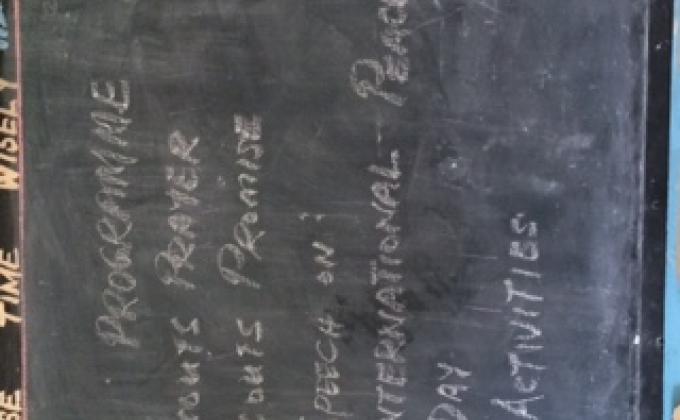 SE TIME WISELY
PROGRAMME
COUTS PRAYER
COUTS PROMISE
PEECH ON:
NTERNATIONAL PEAC
DAY
ACTIVITIES